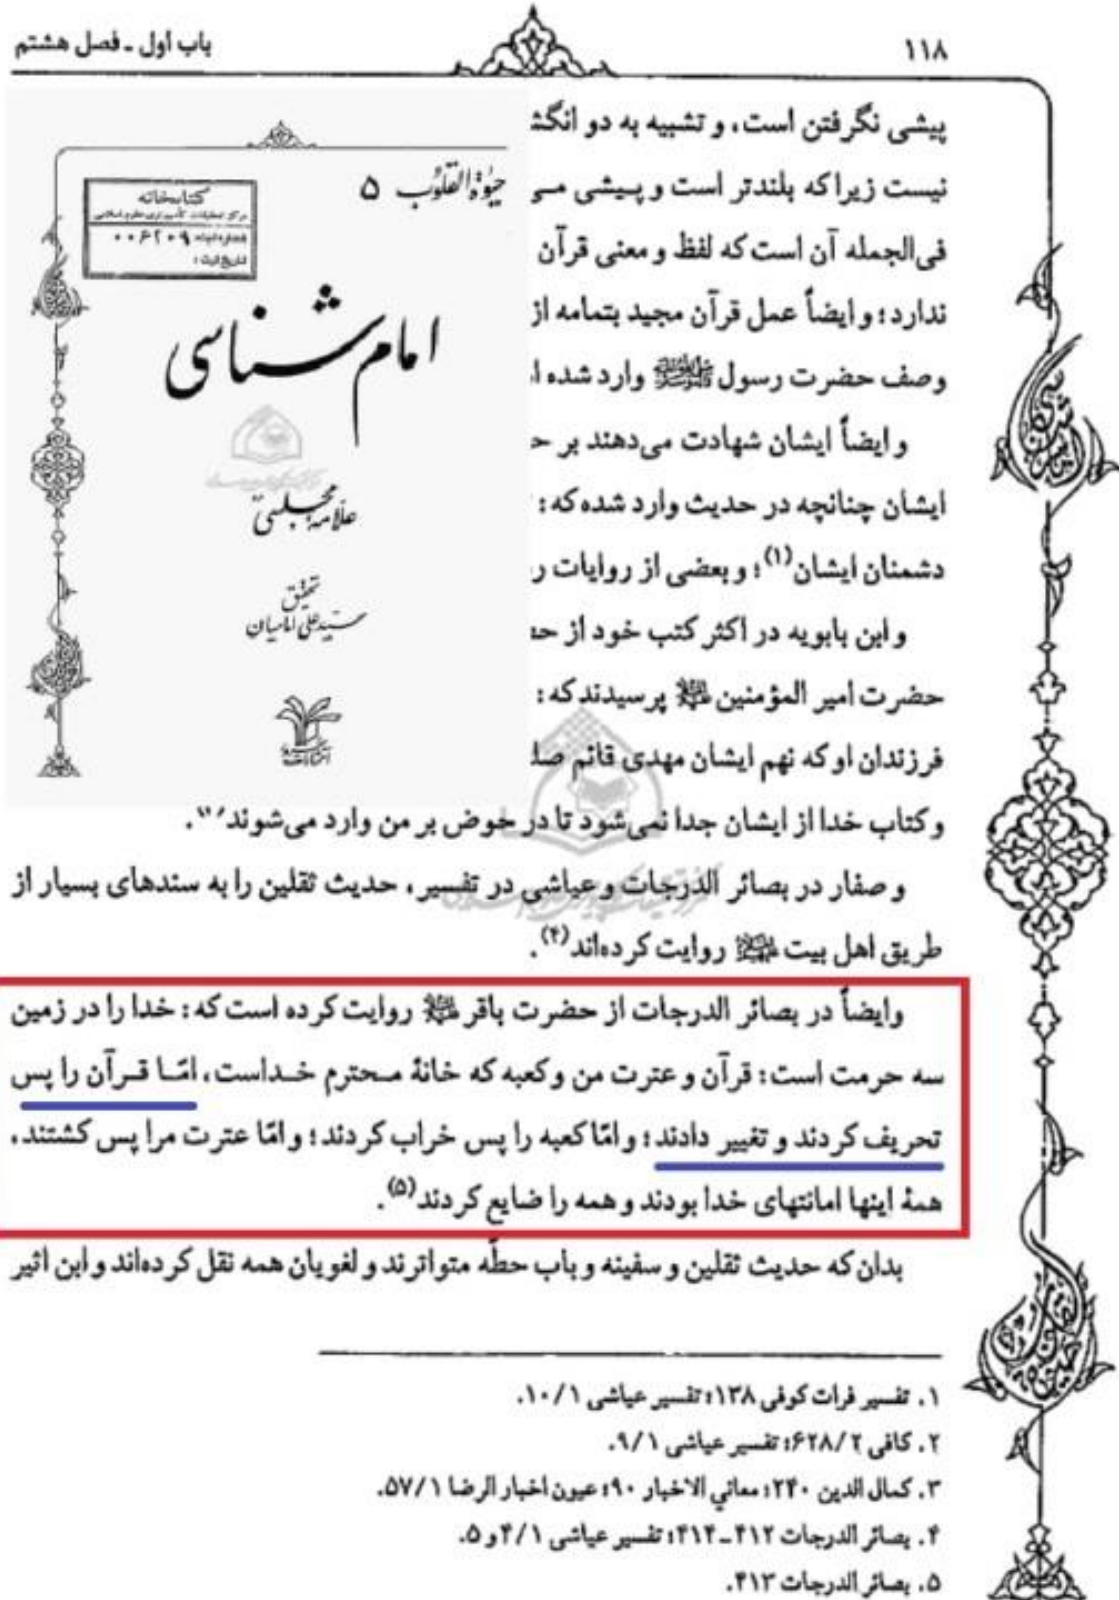 ۱۱۸
باب اول ـ فصل هشتم
پیشی نگرفتن است، و تشبیه به دو انگش
نیست زیرا که بلندتر است و پیشی می
فی‌الجمله آن است که لفظ و معنی قرآن
ندارد؛ و ایضاً عمل قرآن مجید بتمامه از
وصف حضرت رسول ﷺ وارد شده ا
و ایضاً ایشان شهادت می‌دهند بر ح
ایشان چنانچه در حدیث وارد شده که:
دشمنان ایشان(۱)؛ و بعضی از روایات ر
و ابن بابویه در اکثر کتب خود از حض
حضرت امیر المؤمنین علیه السلام پرسیدند که:
فرزندان او که نهم ایشان مهدی قائم صل
و کتاب خدا از ایشان جدا نمی‌شود تا در حوض بر من وارد می‌شوند.
و صفار در بصائر الدرجات و عیاشی در تفسیر، حدیث ثقلین را به سندهای بسیار از
طریق اهل بیت علیهم السلام روایت کرده‌اند(۴).
وایضاً در بصائر الدرجات از حضرت باقر علیه السلام روایت کرده است که: خدا را در زمین
سه حرمت است: قرآن و عترت من و کعبه که خانهٔ محترم خداست، امّا قرآن را پس
تحریف کردند و تغییر دادند؛ و امّا کعبه را پس خراب کردند؛ و امّا عترت مرا پس کشتند،
همهٔ اینها امانتهای خدا بودند و همه را ضایع کردند(۵).
بدان که حدیث ثقلین و سفینه و باب حطّه متواترند و لغویان همه نقل کرده‌اند و ابن اثیر
۱. تفسیر فرات کوفی ۱۳۸؛ تفسیر عیاشی ۱۰/۱.
۲. کافی ۶۲۸/۲؛ تفسیر عیاشی ۹/۱.
۳. کمال الدین ۲۴۰؛ معاني الاخبار ۹۰؛ عیون اخبار الرضا ۵۷/۱.
۴. بصائر الدرجات ۴۱۲ـ۴۱۴؛ تفسیر عیاشی ۴/۱ و ۵.
۵. بصائر الدرجات ۴۱۳.
حیوة القلوب ۵
کتابخانه
مرکز تحقیقات کامپیوتری علوم اسلامی
شماره ثبت: ۰۰۶۲۰۹
تاریخ ثبت:
امام شناسی
علامه مجلسی
تحقیق
سید علی امامیان